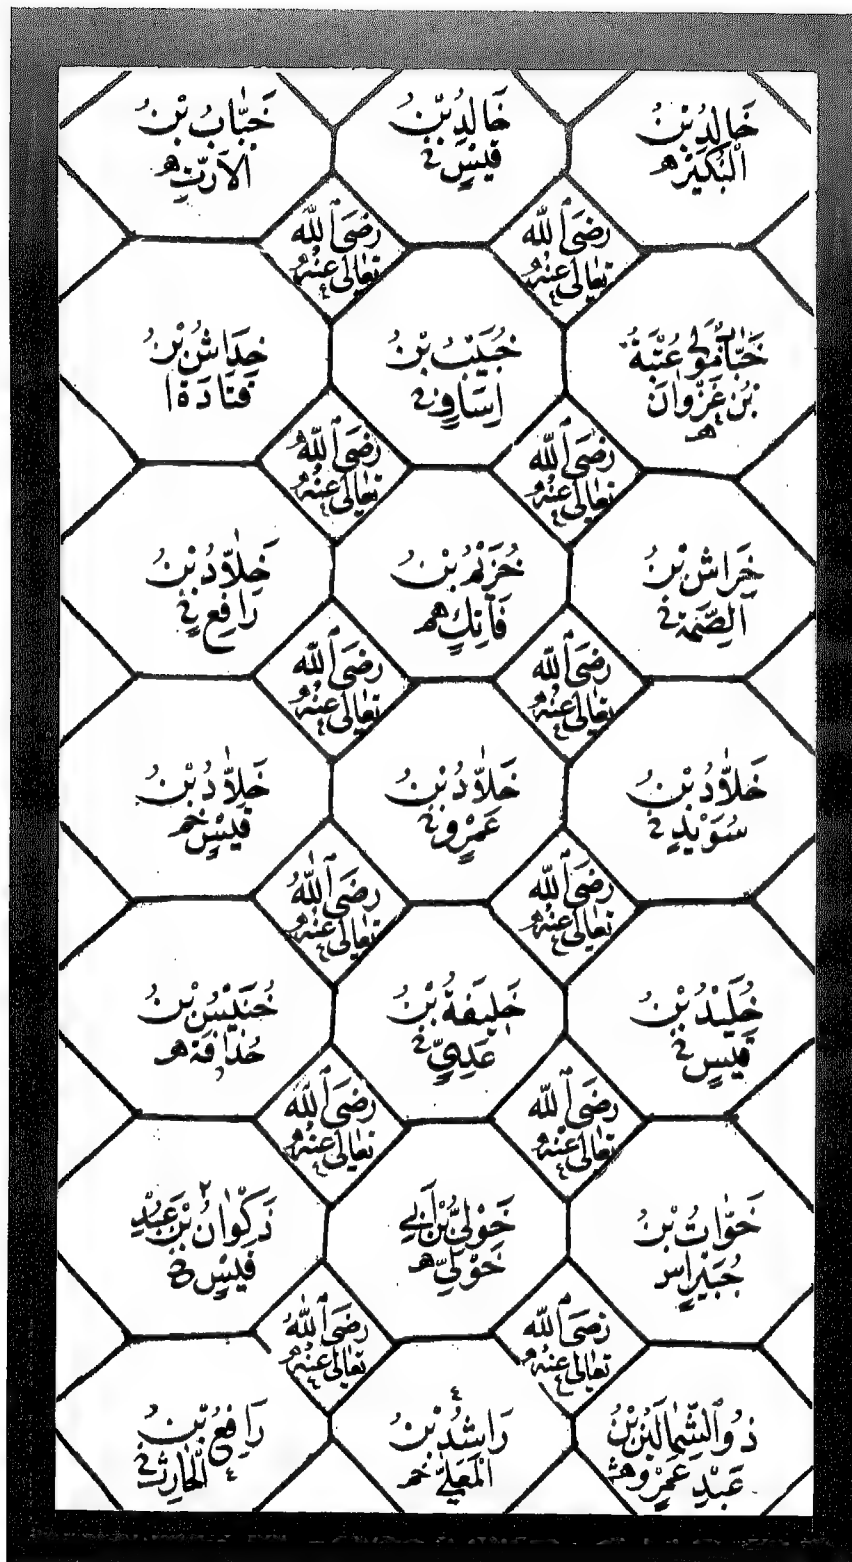 خَالِدُ بْنُ
الْبُكَيْرِ هـ
خَالِدُ بْنُ
قَيْسٍ خ
خَبَّابُ بْنُ
الْاَرَتِّ هـ
رَضِىَ اللّٰه
تَعَالٰى عَنْهُ
رَضِىَ اللّٰه
تَعَالٰى عَنْهُ
خَبَّابٌ مَوْلٰى عُتْبَةَ
بْنِ غَزْوَانَ
هـ
خُبَيْبُ بْنُ
اِسَافٍ خ
خِدَاشُ بْنُ
قَتَادَةَ ا
رَضِىَ اللّٰه
تَعَالٰى عَنْهُ
رَضِىَ اللّٰه
تَعَالٰى عَنْهُ
خِرَاشُ بْنُ
الصِّمَّةِ خ
خُرَيْمُ بْنُ
فَاتِكٍ هـ
خَلَّادُ بْنُ
رَافِعٍ خ
رَضِىَ اللّٰه
تَعَالٰى عَنْهُ
رَضِىَ اللّٰه
تَعَالٰى عَنْهُ
خَلَّادُ بْنُ
سُوَيْدٍ خ
خَلَّادُ بْنُ
عَمْرٍو خ
خَلَّادُ بْنُ
قَيْسٍ خم
رَضِىَ اللّٰه
تَعَالٰى عَنْهُ
رَضِىَ اللّٰه
تَعَالٰى عَنْهُ
خُلَيْدُ بْنُ
قَيْسٍ خ
خَلِيفَةُ بْنُ
عَدِيٍّ خ
خُنَيْسُ بْنُ
حُذَافَةَ هـ
رَضِىَ اللّٰه
تَعَالٰى عَنْهُ
رَضِىَ اللّٰه
تَعَالٰى عَنْهُ
خَوَّاتُ بْنُ
جُبَيْرٍ اس
خَوْلِيُّ بْنُ اَبِي
خَوْلِيٍّ هـ
ذَكْوَانُ بْنُ عَبْدِ
قَيْسٍ
رَضِىَ اللّٰه
تَعَالٰى عَنْهُ
رَضِىَ اللّٰه
تَعَالٰى عَنْهُ
ذُو الشِّمَالَيْنِ بْنُ
عَبْدِ عَمْرٍو
رَاشِدُ بْنُ
الْمُعَلّٰى خم
رَافِعُ بْنُ
الْحَارِثِ خ